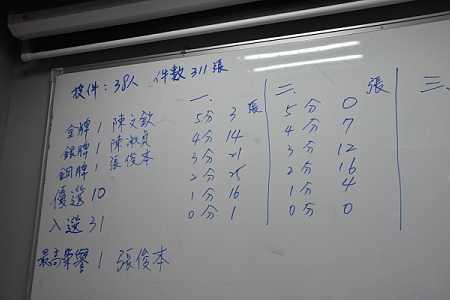 投件：38人 件數311張
金牌1 陳文欽
銀牌1 陳淑貞
銅牌1 張俊本
優選10
入選31
最高榮譽1 張俊本
一、 張
5分 3
4分 14
3分 21
2分 25
1分 16
0分 1
二、 張
5分 0
4分 7
3分 12
2分 16
1分 4
0分 0
三、